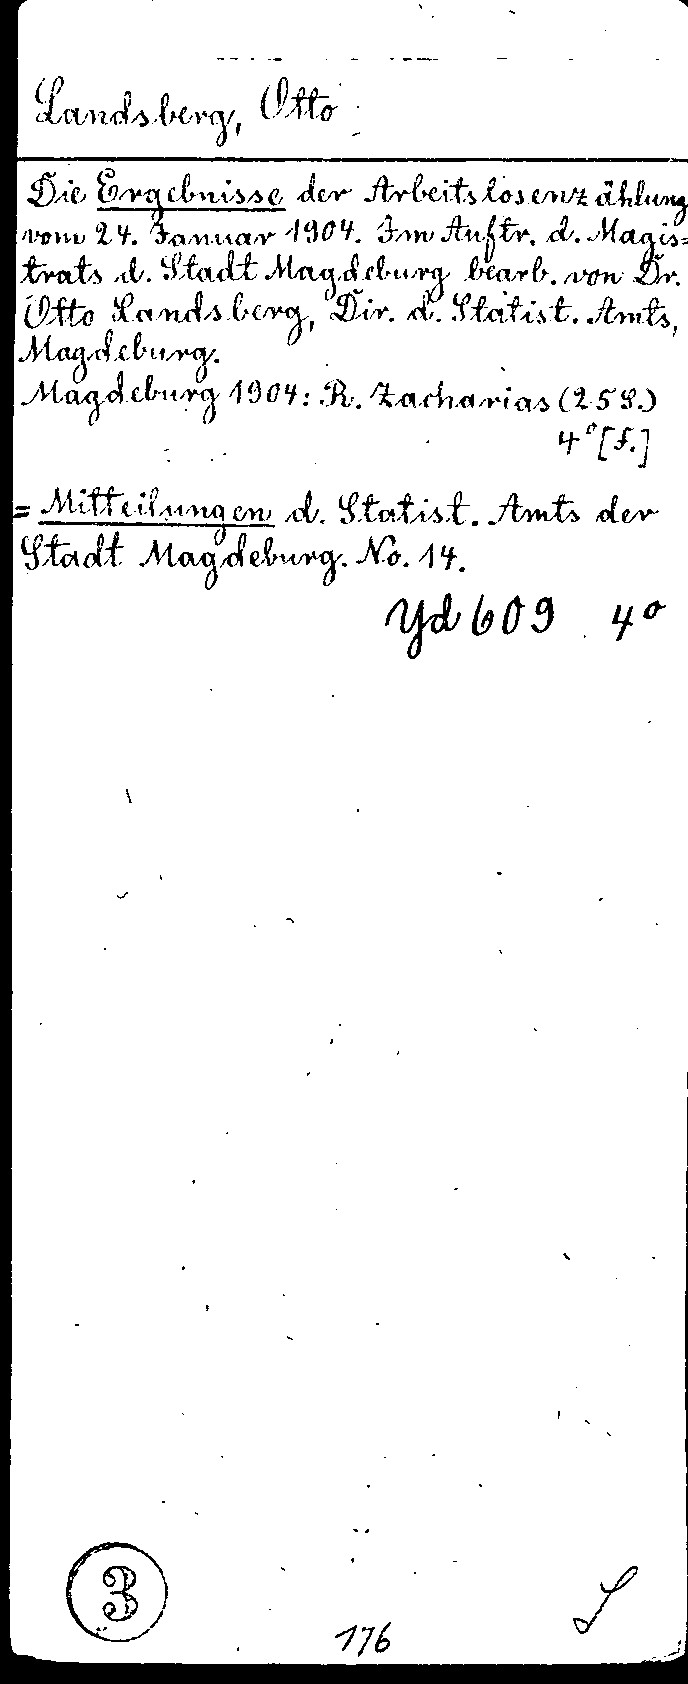 Landsberg, Otto
Die Ergebnisse der Arbeitslosenzählung
vom 24. Januar 1904. Im Auftr. d. Magis=
trats d. Stadt Magdeburg bearb. von Dr.
Otto Landsberg, Dir. d. Statist. Amts,
Magdeburg.
Magdeburg 1904: R. Zacharias (25 S.)
4° [f.]
= Mitteilungen d. Statist. Amts der
Stadt Magdeburg. No. 14.
Yd 609 4°
3
176